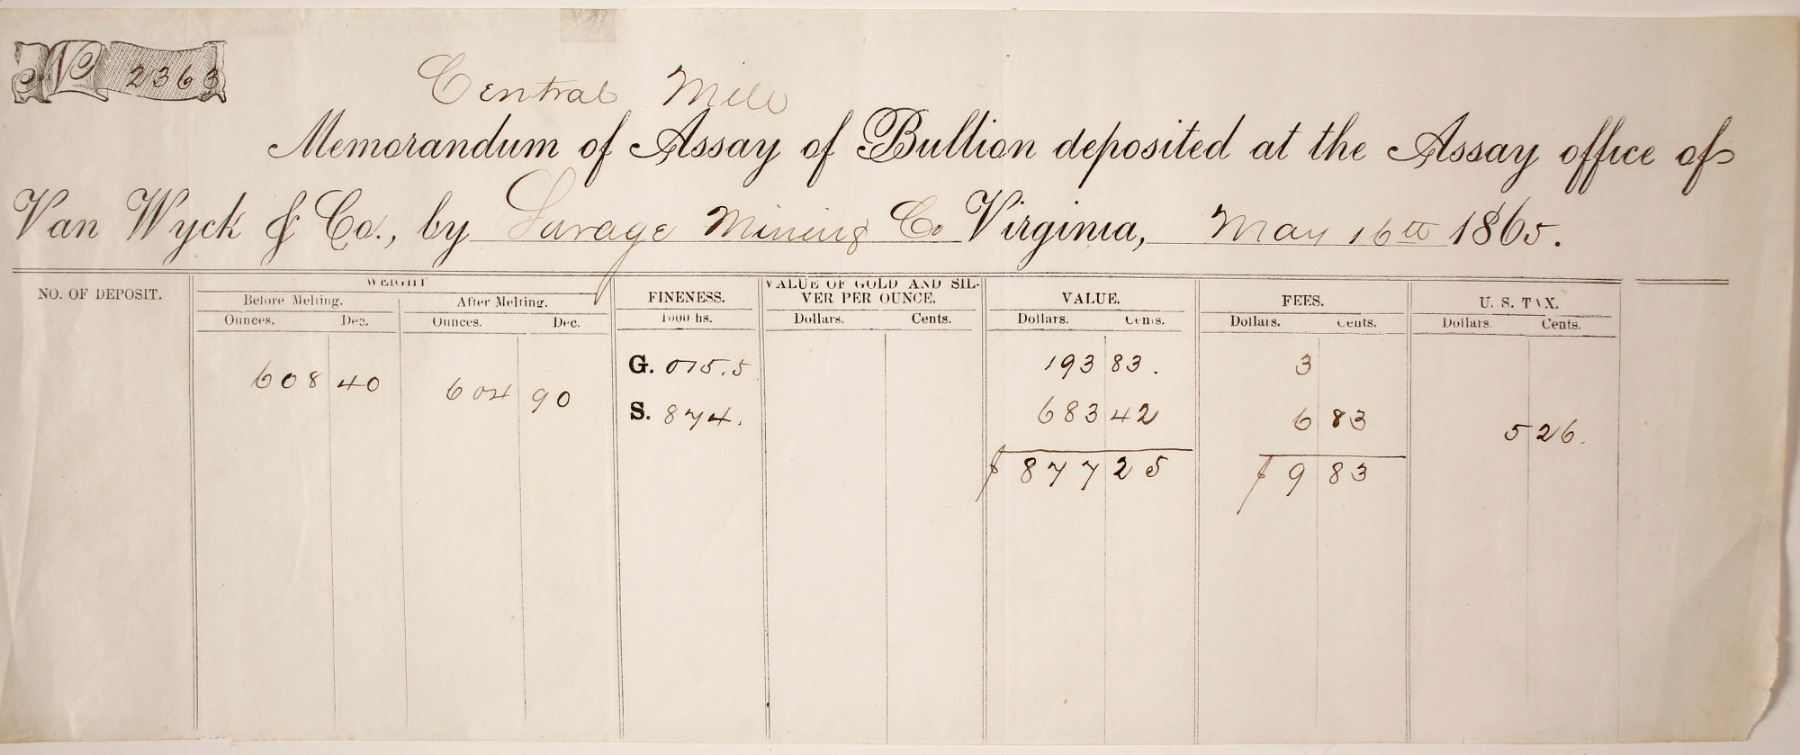 No 2363
Central Mill
Memorandum of Assay of Bullion deposited at the Assay office of
Van Wyck & Co., by Savage Mining Co Virginia, May 16th 1865.
NO. OF DEPOSIT.
WEIGHT
Before Melting.
After Melting.
Ounces. Dec.
Ounces. Dec.
FINENESS.
1000 hs.
VALUE OF GOLD AND SIL-
VER PER OUNCE.
Dollars. Cents.
VALUE.
Dollars. Cents.
FEES.
Dollars. Cents.
U. S. TAX.
Dollars. Cents.
608 40 604 90 G. 015.5 193 83. 3
S. 874. 683 42 6 83 5 26.
$ 877 25 $ 9 83